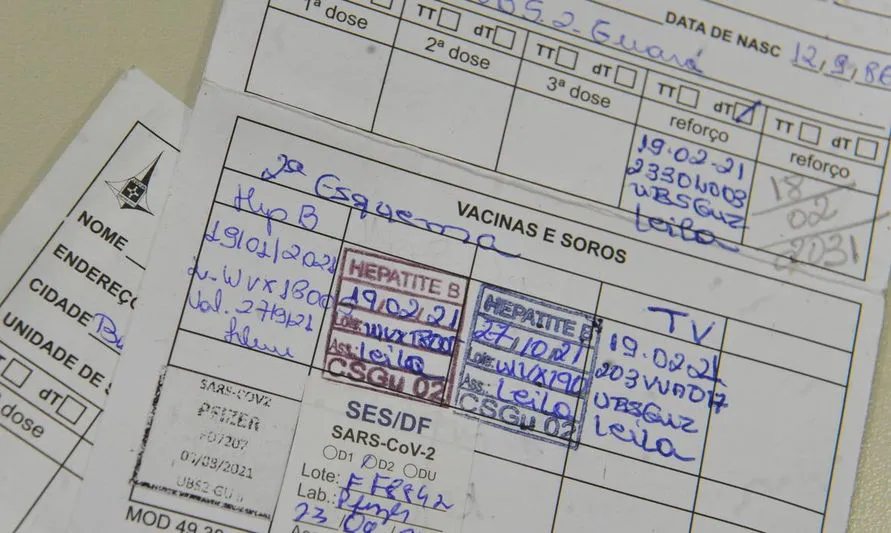 UBS 2 - Guará
DATA DE NASC 12, 9, 86
1ª dose
TT dT
2ª dose
TT dT
3ª dose
TT dT
reforço
TT dT
reforço
19.02-21
UBSGUZ
Leila
18
02
2031
VACINAS E SOROS
2ª Esquema
Hep B
19/01/2021
Val. 27/9/21
HEPATITE B
19/02/21
Lote:
Ass.: Leila
CSGu 02
HEPATITE B
27/10/21
Lote: WVX190
Ass.: Leila
CSGU 02
TV
19.02.21
UBSGUZ
Leila
SARS-COV2
PFIZER
UBS2 GU
SES/DF
SARS-CoV-2
D1 D2 DU
Lote: FF8842
Lab.: Pfizer
23
MOD 49.38
NOME
ENDEREÇO
CIDADE
UNIDADE DE
TT
dT
dose